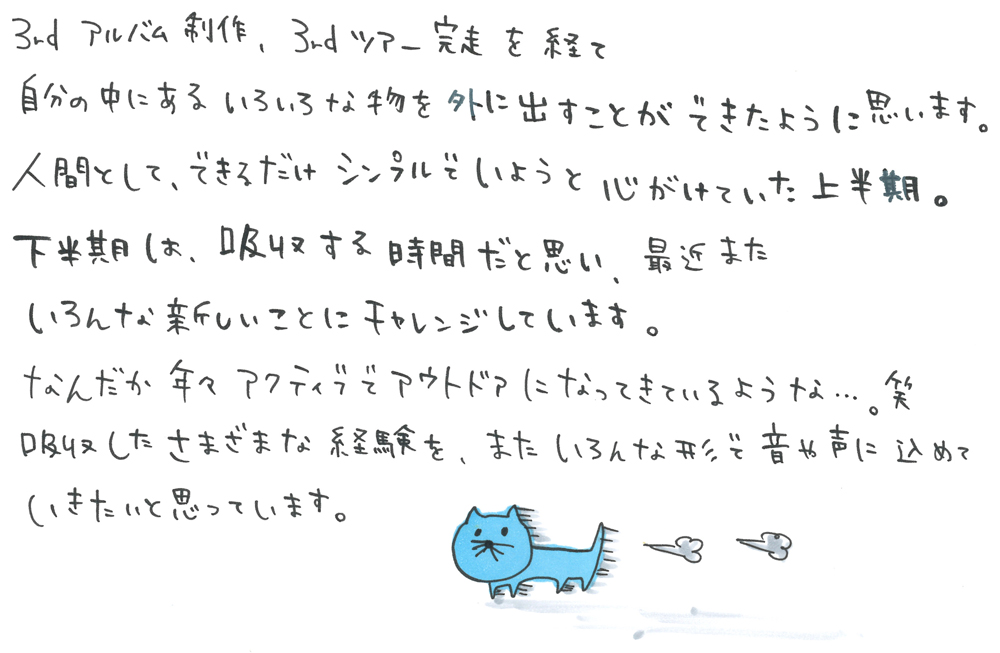 3rd アルバム制作、3rdツアー完走を経て
自分の中にあるいろいろな物を外に出すことができたように思います。
人間として、できるだけシンプルでいようと心がけていた上半期。
下半期は、吸収する時間だと思い、最近また
いろんな新しいことにチャレンジしています。
なんだか年々アクティブでアウトドアになってきているような…。笑
吸収したさまざまな経験を、またいろんな形で音や声に込めて
いきたいと思っています。